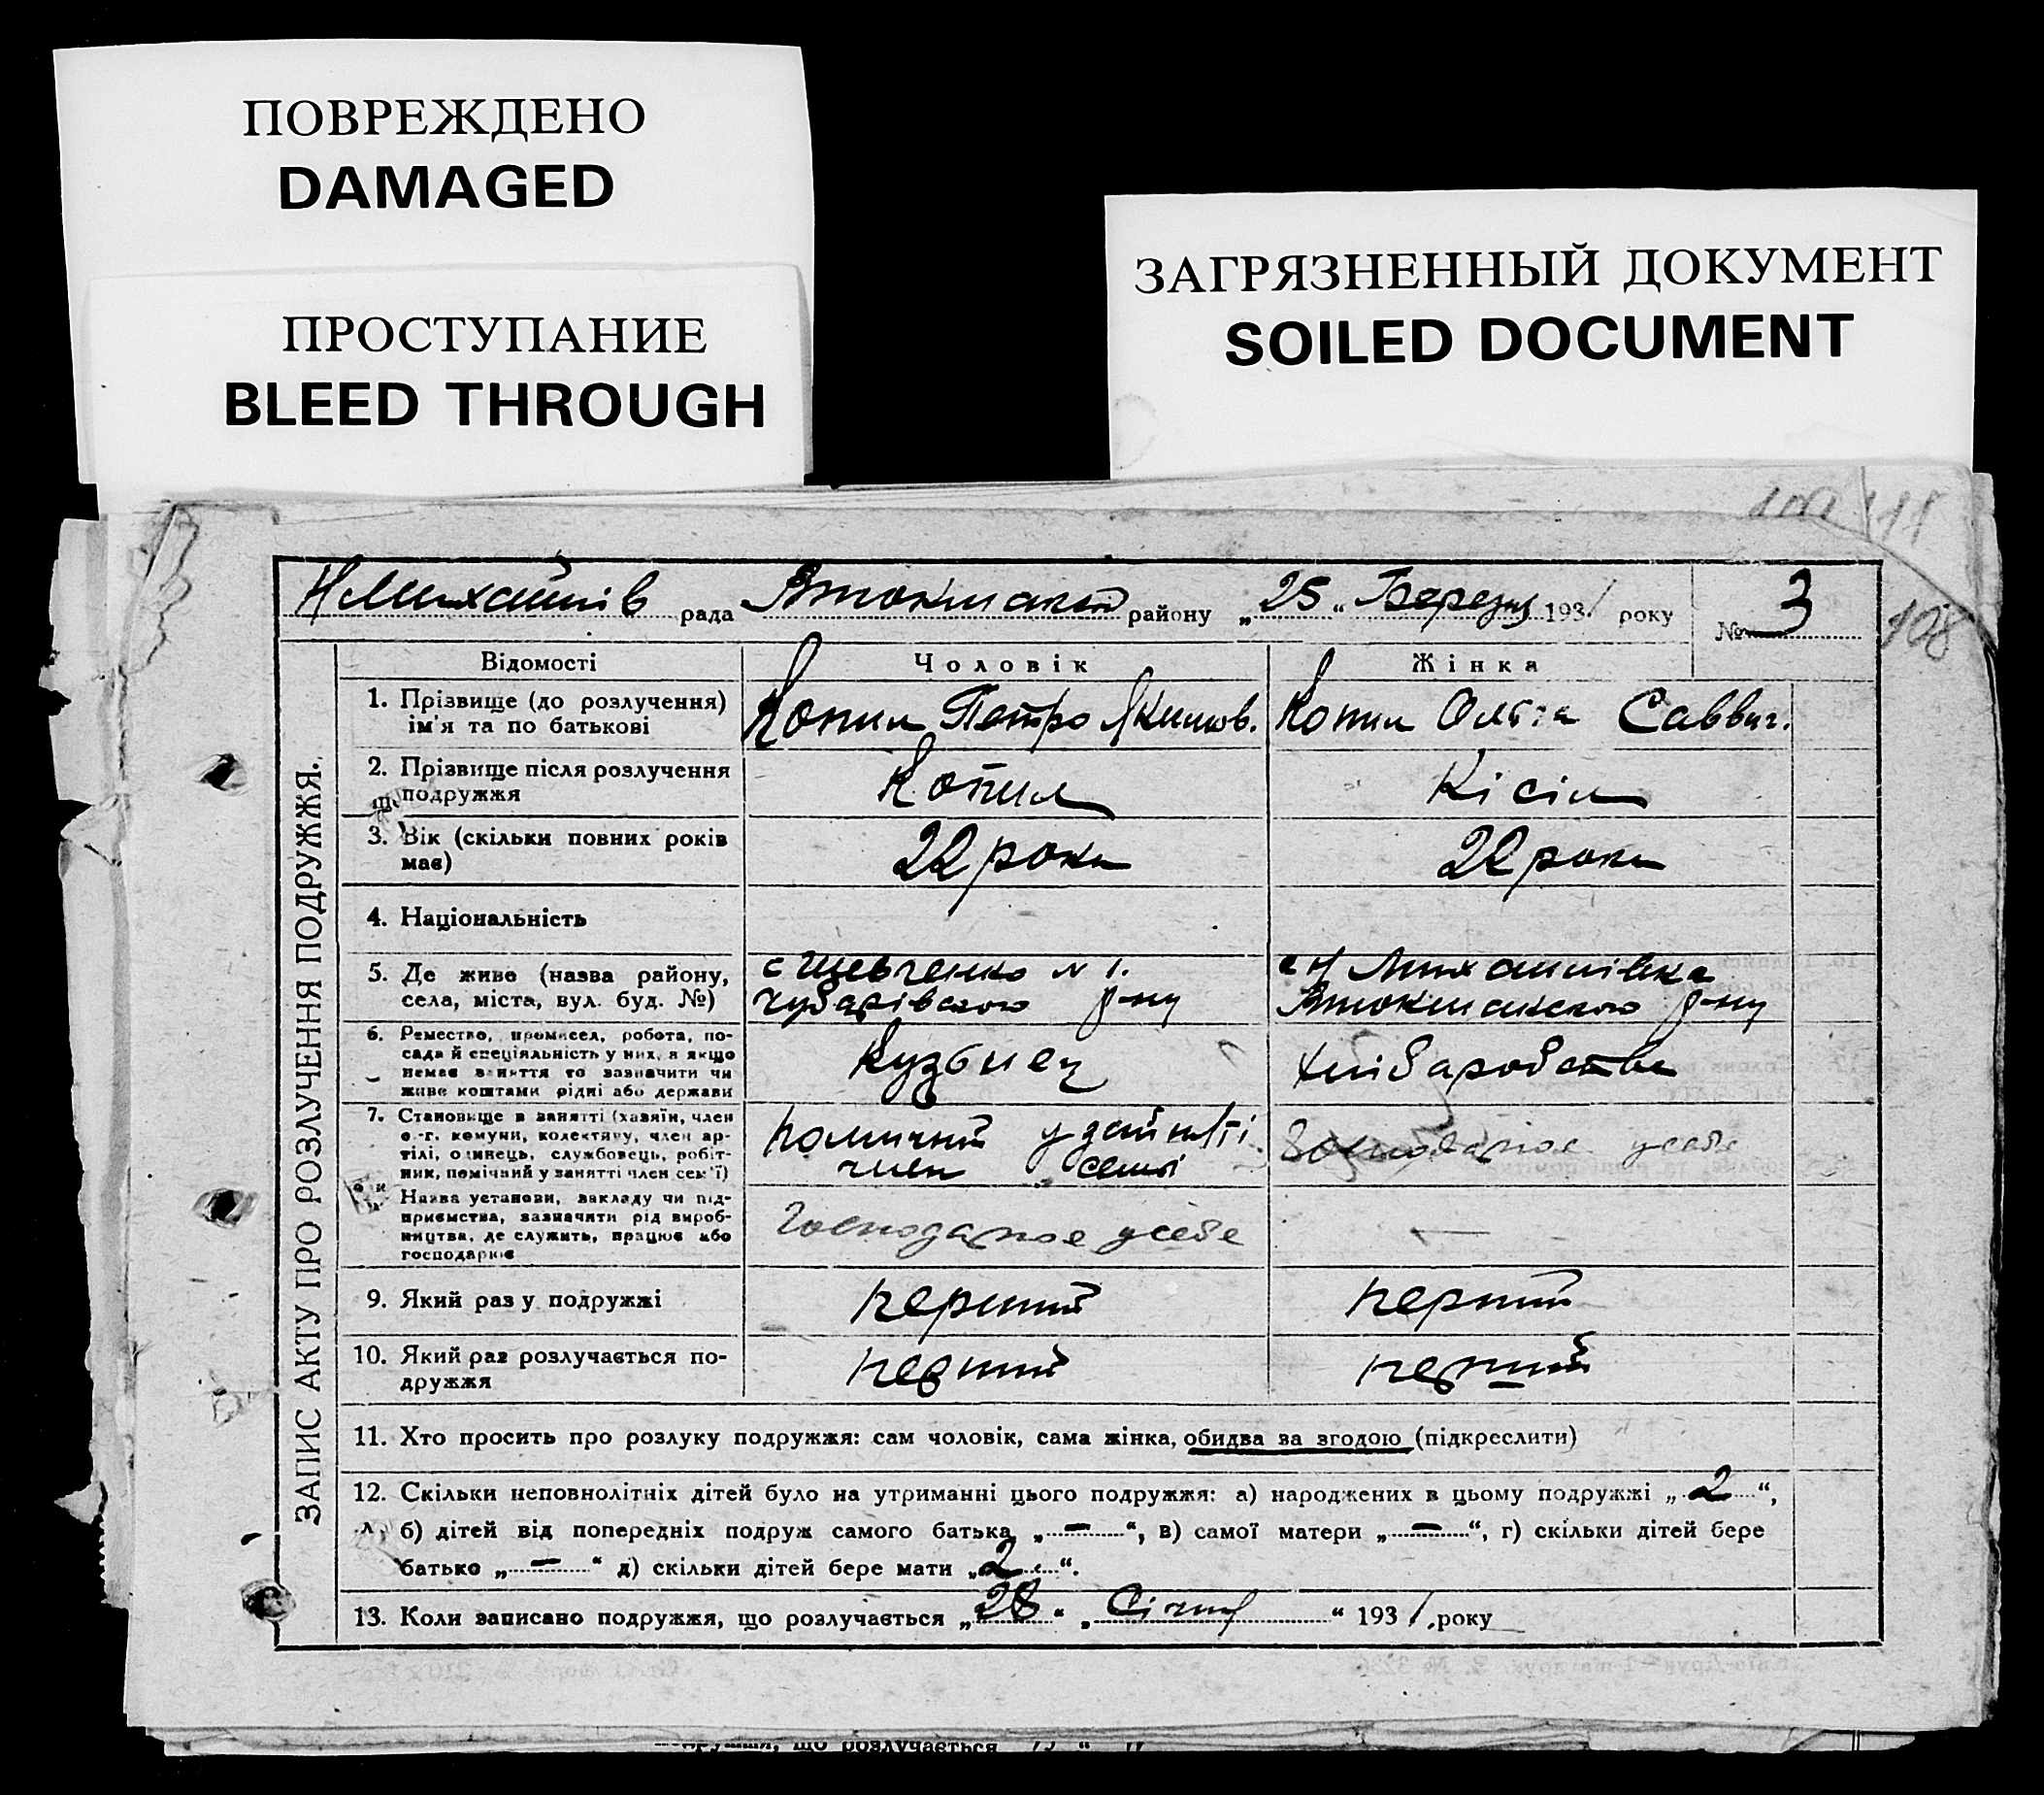 ПОВРЕЖДЕНО
DAMAGED
ПРОСТУПАНИЕ
BLEED THROUGH
ЗАГРЯЗНЕННЫЙ ДОКУМЕНТ
SOILED DOCUMENT
108
рада району „25“ Березня 1931 року № 3
ЗАПИС АКТУ ПРО РОЗЛУЧЕННЯ ПОДРУЖЖЯ.
Відомості Чоловік Жінка
1. Прізвище (до розлучення) ім'я та по батькові Копил Петро Якимов. Копил Ольга Саввич.
2. Прізвище після розлучення подружжя Копил Кісіл
3. Вік (скільки повних років має) 22 роки 22 роки
4. Національність
5. Де живе (назва району, села, міста, вул. буд. №) с Шевченко N 1. Чубарівського р-ну с Н Михайлівка Втокмакского р-ну
6. Ремество, промисел, робота, посада й спеціяльність у них, а якщо немає заняття то зазначити чи живе коштами рідні або держави Кузьнец хлібаробство
7. Становище в занятті (хазяїн, член с.-г. комуни, колективу, член артілі, одинець, службовець, робітник, помічний у занятті член сем'ї) помичний у занятті член семьі Господарює усебе
Назва установи, закладу чи підприємства, зазначити рід виробництва, де служить, працює або господарює Господарює усебе —
9. Який раз у подружжі перший перший
10. Який раз розлучається подружжя перший перший
11. Хто просить про розлуку подружжя: сам чоловік, сама жінка, обидва за згодою (підкреслити)
12. Скільки неповнолітніх дітей було на утриманні цього подружжя: а) народжених в цьому подружжі „2“,
б) дітей від попередніх подруж самого батька „—“, в) самої матери „—“, г) скільки дітей бере
батько „—“ д) скільки дітей бере мати „2“.
13. Коли записано подружжя, що розлучається „28“ „Січня“ 1931 року
що розлучається